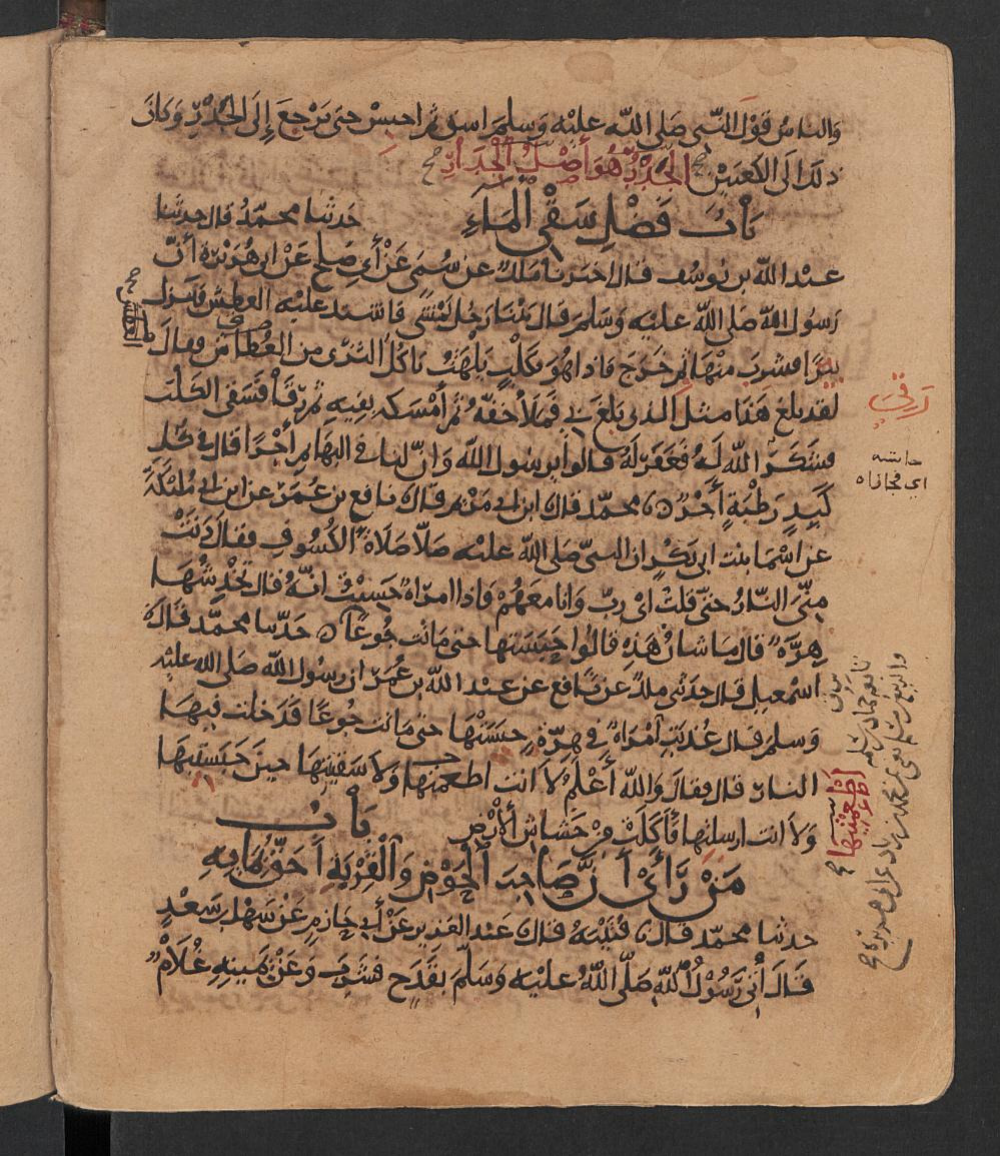 والناس قول النبي صلى الله عليه وسلم اسق ثم احبس حتى يرجع إلى الجدر وكان
ذلك الى الكعبين الجدر هو أصل الجدار
باب فضل سقي الماء حدثنا محمد قال حدثنا
عبد الله بن يوسف قال اخبرنا ملك عن سمي عن أبي صلح عن ابي هريرة أن
رسول الله صلى الله عليه وسلم قال بينا رجل يمشي فاشتد عليه العطش فنزل
بيرا فشرب منها ثم خرج فاذا هو بكلب يلهث ياكل الثرى من العطاش فقال
لقد بلغ هذا مثل الذي بلغ بي فملأ خفه ثم أمسكه بفيه ثم رقأ فسقى الكلب
فشكر الله له فغفر له قالوا يرسول الله وان لنا في البهايم أجرا قال في كل
كبد رطبة أجر محمد قال ابن ابي مريم قال نافع بن عمر عن ابن ابي مليكة
عن اسما بنت ابي بكر ان النبي صلى الله عليه صلا صلاة الكسوف فقال دنت
مني النار حتى قلت اي رب وانا معهم واذا امراة حسبت انه قال تخدشها
هرة قال ما شان هذه قالوا حبستها حتى ماتت جوعا حدثنا محمد قال
اسمعيل قال حدثني ملك عن نافع عن عبد الله بن عمر ان رسول الله صلى الله عليه
وسلم قال عذبت امراة في هرة حبستها حتى ماتت جوعا فدخلت فيها
النار قال فقال والله أعلم لا انت اطعمتها ولا سقيتها حين حبستيها
ولا انت ارسلتها فأكلت من خشاش الأرض باب
من رأى أن صاحب الحوض والقربة احق بمايه
حدثنا محمد قال قتيبة قال عبد العزيز عن أبي حازم عن سهل بن سعد
قال أتي رسول الله صلى الله عليه وسلم بقدح فشرب وعن يمينه غلام
رقي
حاشية
اي مجازاه
أطعمتيها
تابعه حماد بن سلمه
والربيع بن مسلم عن محمد بن زياد